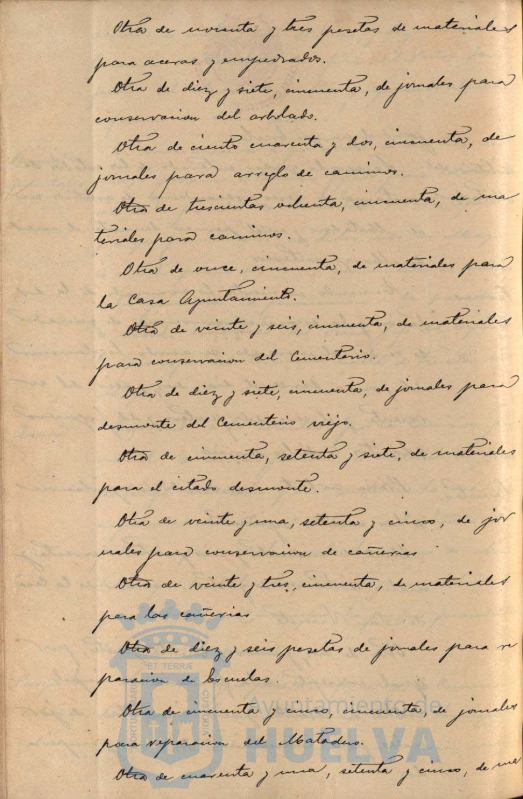 Otra de noventa y tres pesetas de materiales
para aceras y empedrados.
Otra de diez y siete, cincuenta, de jornales para
conservacion del arbolado.
Otra de ciento cuarenta y dos, cincuenta, de
jornales para arreglo de caminos.
Otra de trescientas ochenta, cincuenta, de ma
teriales para caminos.
Otra de once, cincuenta, de materiales para
la Casa Ayuntamiento.
Otra de veinte y seis, cincuenta, de materiales
para conservacion del Cementerio.
Otra de diez y siete, cincuenta, de jornales para
desmonte del Cementerio viejo.
Otra de cincuenta, setenta y siete, de materiales
para el citado desmonte.
Otra de veinte y una, setenta y cinco, de jor
nales para conservacion de cañerias
Otra de veinte y tres, cincuenta, de materiales
para las cañerias
Otra de diez y seis pesetas de jornales para re
paracion de Escuelas.
Otra de cincuenta y cinco, cincuenta, de jornales
para reparacion del Matadero.
Otra de cuarenta y una, setenta y cinco, de ma
ET TERRÆ
Ayuntamiento de
HUELVA